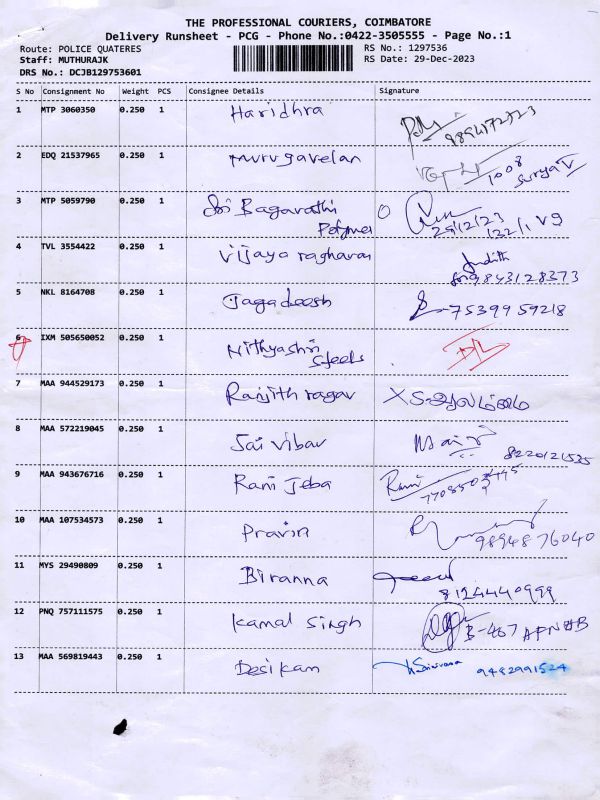 THE PROFESSIONAL COURIERS, COIMBATORE
Delivery Runsheet - PCG - Phone No.:0422-3505555 - Page No.:1
Route: POLICE QUATERES RS No.: 1297536
Staff: MUTHURAJK RS Date: 29-Dec-2023
DRS No.: DCJB129753601
S No Consignment No Weight PCS Consignee Details Signature
1 MTP 3060350 0.250 1 Haridhra
2 EDQ 21537965 0.250 1 Murugavelan 1008
Surya V
3 MTP 5059790 0.250 1 Sri Bagavathi
Polymer 29/12/23
4 TVL 3554422 0.250 1 Vijaya raghavan Judith
9843128373
5 NKL 8164708 0.250 1 Jagadeesh 7539959218
6 IXM 505650052 0.250 1 Nithyashri
Steels DL
7 MAA 944529173 0.250 1 Ranjith ragav
8 MAA 572219045 0.250 1 Sai vibav 8220121535
9 MAA 943676716 0.250 1 Rani Jeba Rani
10 MAA 107534573 0.250 1 Pravin 9894876040
11 MYS 29490809 0.250 1 Biranna 8124440999
12 PNQ 757111575 0.250 1 Kamal Singh B-467
13 MAA 569819443 0.250 1 Desikan 9482991524